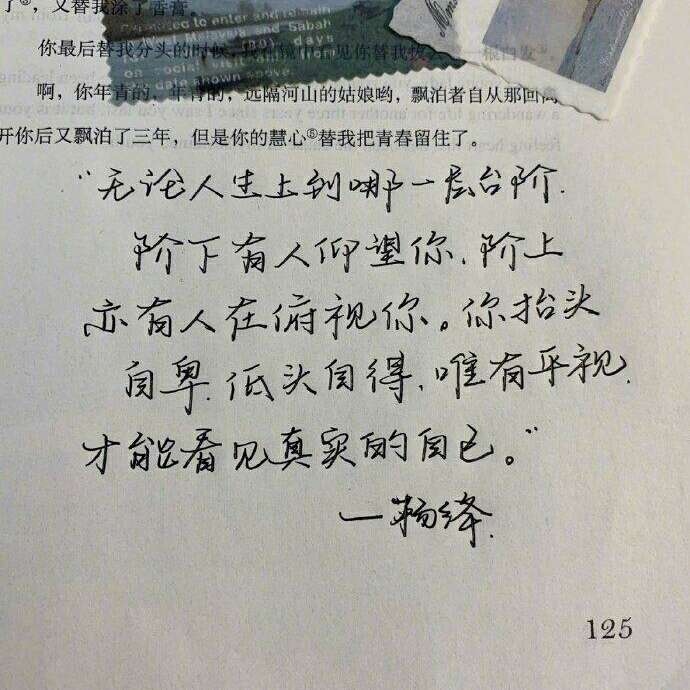 了⑥，又替我涂了香膏。
你最后替我分头的时候，
一根白发
啊，你年青的，年青的，远隔河山的姑娘哟，飘泊者自从那回离
开你后又飘泊了三年，但是你的慧心⑧替我把青春留住了。
"无论人生上到哪一层台阶.
阶下有人仰望你.阶上
亦有人在俯视你。你抬头
自卑.低头自得.唯有平视.
才能看见真实的自己。"
一杨绛.
125
to enter and remain
Malaysia and Sabah